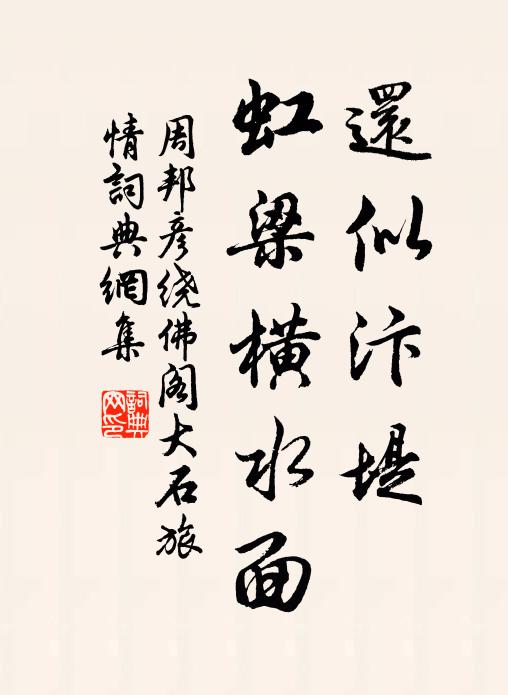 還似汴堤
虹梁橫水面
周邦彥绕佛阁大石旅
情詞典網集
詞典网印